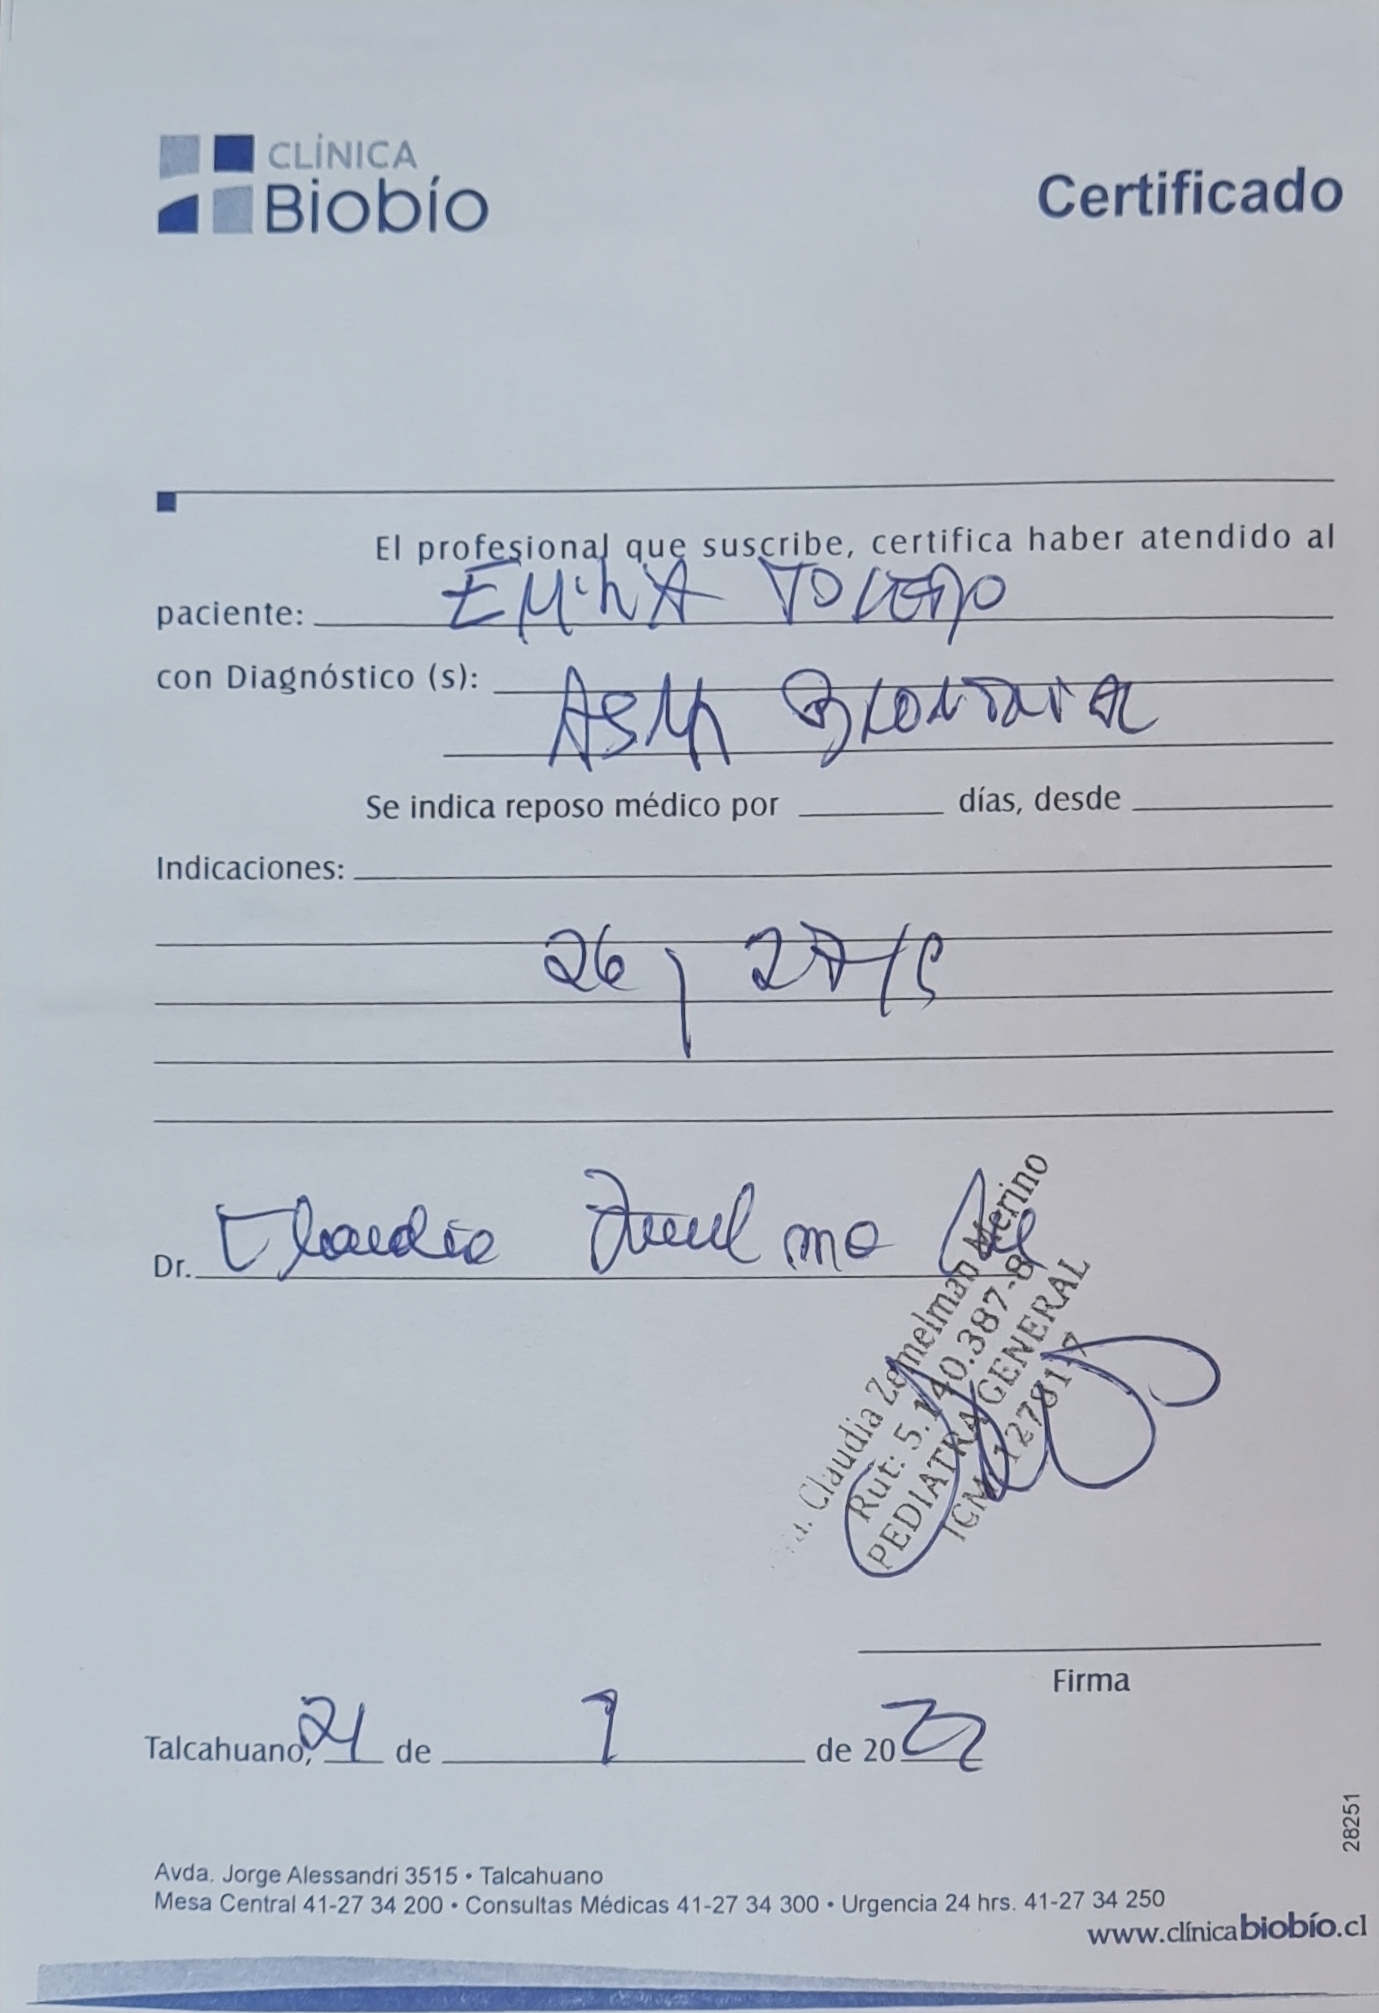 CLÍNICA
Biobío
Certificado
El profesional que suscribe, certifica haber atendido al
paciente: TOLEDO
con Diagnóstico (s): ASMA
Se indica reposo médico por ______ días, desde ______
Indicaciones:
26 y 27/5
Dr. Claudia
Claudia Zemelman Merino
Rut: 5.140.387-8
PEDIATRA GENERAL
ICM: 12781-7
Firma
Talcahuano, 21 de de 2022
28251
Avda. Jorge Alessandri 3515 • Talcahuano
Mesa Central 41-27 34 200 • Consultas Médicas 41-27 34 300 • Urgencia 24 hrs. 41-27 34 250
www.clínicabiobío.cl